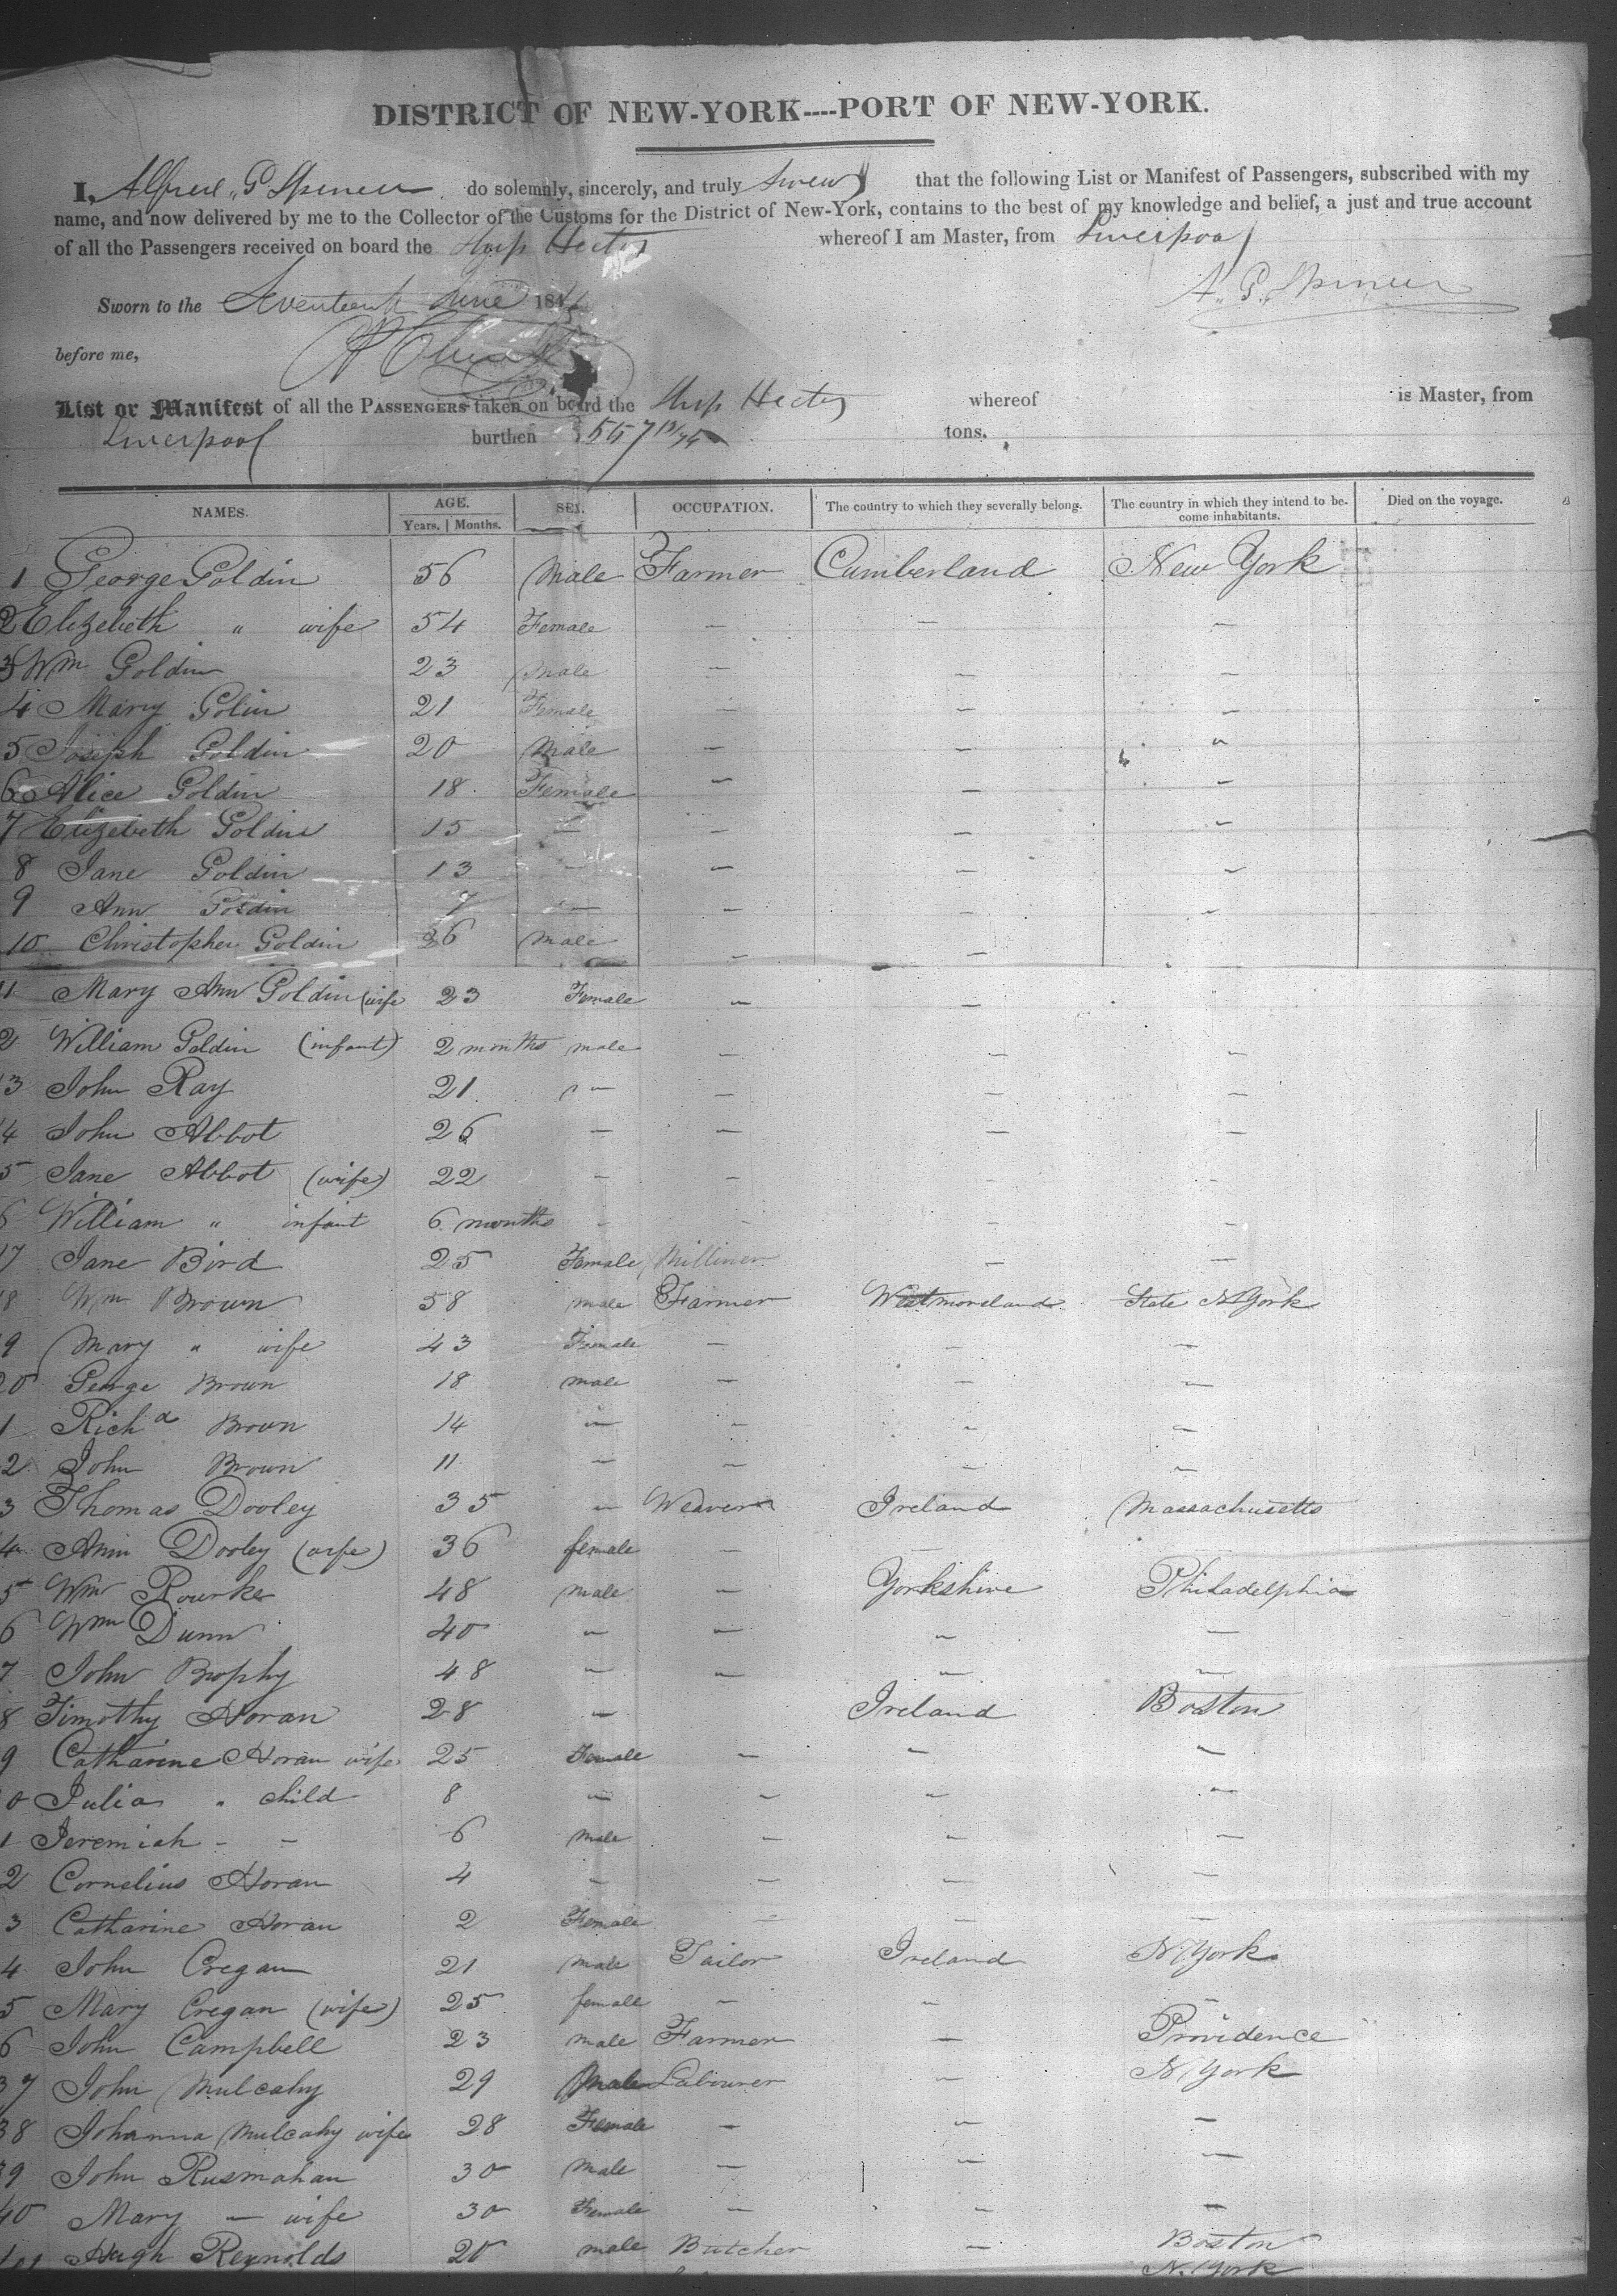 DISTRICT OF NEW-YORK----PORT OF NEW-YORK.
I, Alfred G Spencer do solemnly, sincerely, and truly swear that the following List or Manifest of Passengers, subscribed with my
name, and now delivered by me to the Collector of the Customs for the District of New-York, contains to the best of my knowledge and belief, a just and true account
of all the Passengers received on board the Ship Hector whereof I am Master, from Liverpool
A. G. Spencer
Sworn to the Seventeenth June 184
before me,
List or Manifest of all the PASSENGERS taken on board the Ship Hector whereof is Master, from
Liverpool burthen tons.
NAMES. AGE. SEX. OCCUPATION. The country to which they severally belong. The country in which they intend to be- Died on the voyage.
Years. Months. come inhabitants.
1 George Goldin 56 Male Farmer Cumberland New York
2 Elizebeth " wife 54 Female — — —
3 Wm Goldin 23 Male — — —
4 Mary Golin 21 Female — — —
5 Joseph Goldin 20 Male — — —
6 Alice Goldin 18 Female — — —
7 Elizebeth Goldin 15 — — — —
8 Jane Goldin 13 — — — —
9 Ann Goldin 7 — — — —
10 Christopher Goldin 26 Male — —
11 Mary Ann Goldin (wife 23 Female — —
2 William Goldin (infant) 2 months male — — —
13 John Ray 21 — — — —
14 John Abbot 26 — — — —
5 Jane Abbot (wife) 22 — — — —
6 William " infant 6 months — — — —
17 Jane Bird 25 Female Milliner — —
18 Wm Brown 58 male Farmer Westmoreland State N York
9 Mary " wife 43 Female — — —
20 George Brown 18 male — — —
1 Richd Brown 14 — — — —
2 John Brown 11 — — — —
3 Thomas Dooley 35 — Weaver Ireland Massachusetts
4 Ann Dooley (wife) 36 female — —
5 Wm Rourke 48 male — Yorkshire Philadelphia
6 Wm Dunn 40 — — — —
7 John Brophy 48 — — — —
8 Timothy Horan 28 — Ireland Boston
9 Catharine Horan wife 25 Female — — —
0 Julia " child 8 — — — —
1 Jeremiah - - 6 male — — —
2 Cornelius Horan 4 — — — —
3 Catharine Horan 2 Female — — —
4 John Cregan 21 male Tailor Ireland N York
5 Mary Cregan (wife) 25 female — — —
6 John Campbell 23 male Farmer — Providence
37 John Mulcahy 29 Male Labourer — N York
38 Johanna Mulcahy wife 28 Female — — —
39 John Rusmahan 30 Male — — —
40 Mary — wife 30 Female — — —
Hugh Reynolds 20 male Butcher — Boston
N. York